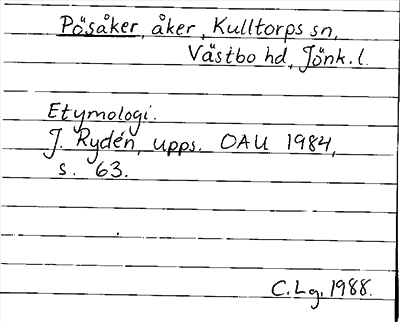 Pösåker, åker, Kulltorps sn,
Västbo hd, Jönk. l.
Etymologi.
J. Rydén, upps. OAU 1984,
s. 63.
C. Lg, 1988.